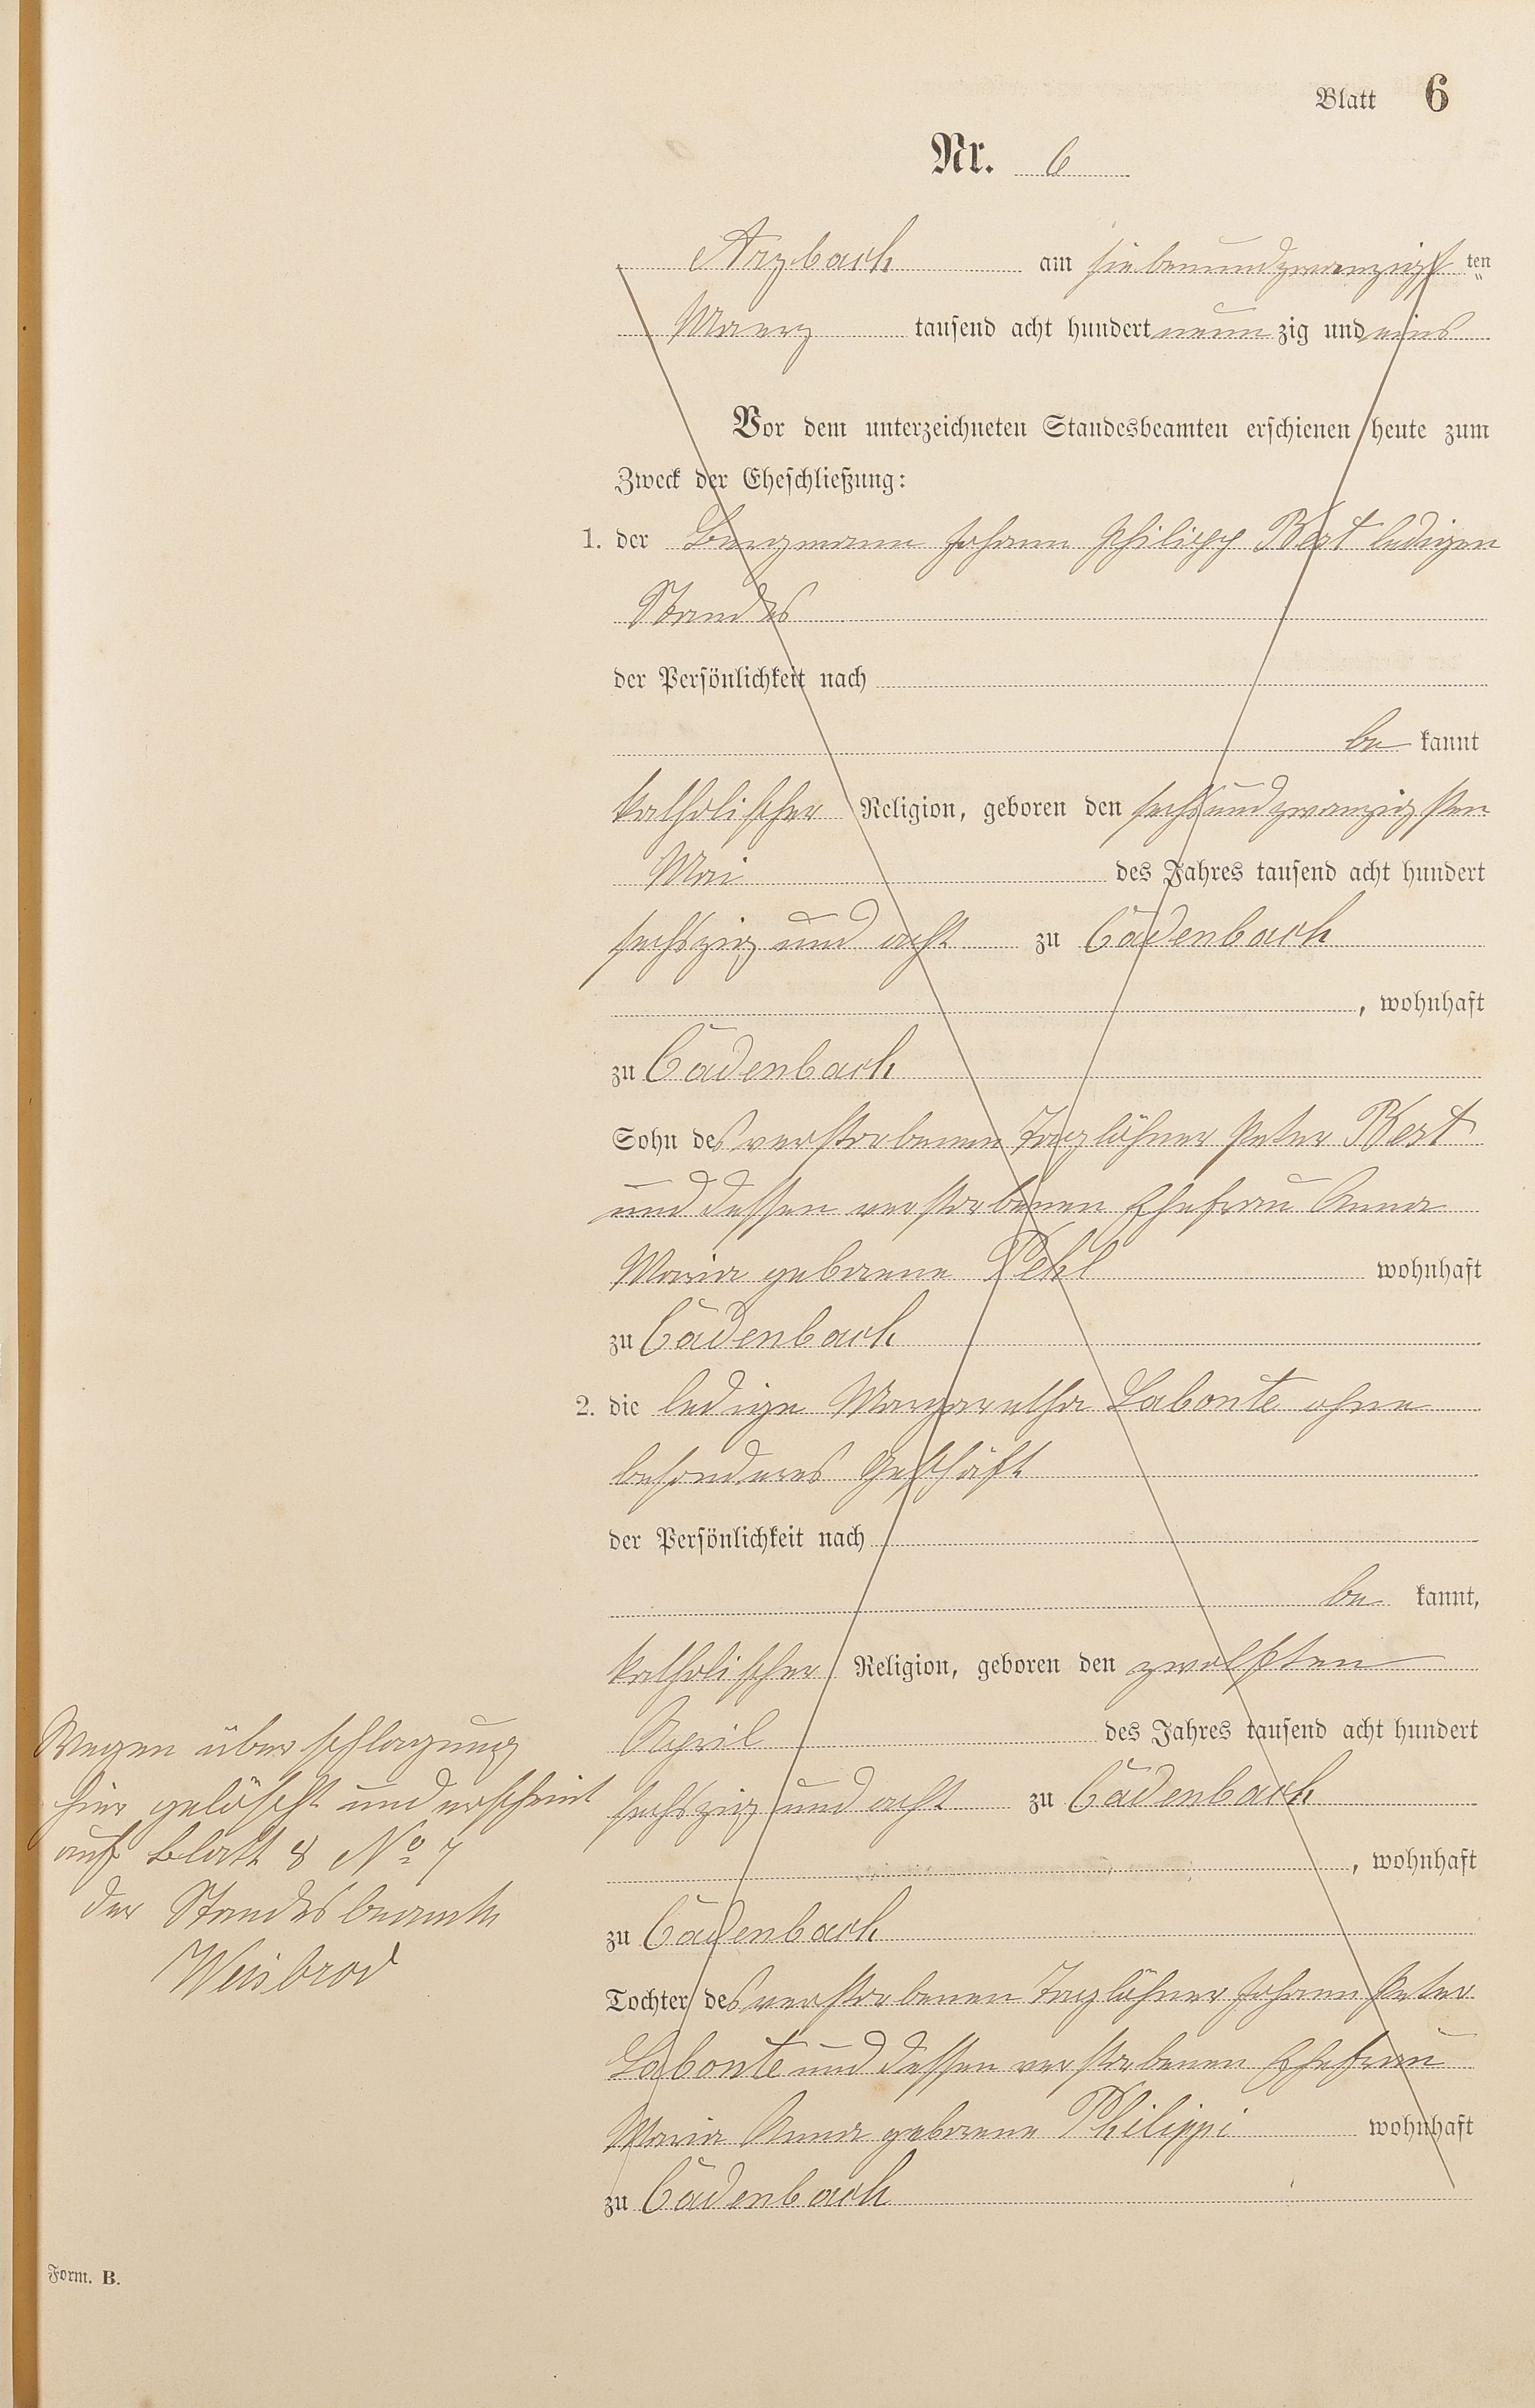 Blatt 6
Nr. 6
Arzbach am siebenundzwanzigst ten
Maerz tausend acht hundert neun zig und eins
Vor dem unterzeichneten Standesbeamten erschienen heute zum
Zweck der Eheschließung:
1. der Bergmann Johann Philipp Best ledigen
Standes
der Persönlichkeit nach
be kannt
katholischer Religion, geboren den sechsundzwanzigsten
Mai des Jahres tausend acht hundert
sechszig und acht zu Cadenbach
, wohnhaft
zu Cadenbach
Sohn des verstorbenen Taglöhner Peter Best
und dessen verstorbenen Ehefrau Anna
Maria geborene Pehl wohnhaft
zu Cadenbach
2. die ledige Margaretha Labonte ohne
besonderes Geschäft
der Persönlichkeit nach
be kannt,
katholischer Religion, geboren den zwölften
April des Jahres tausend acht hundert
sechszig und acht zu Cadenbach
, wohnhaft
zu Cadenbach
Tochter des verstorbenen Taglöhner Johann Peter
Labonte und dessen verstorbenen Ehefrau
Maria Anna geborene Philippi wohnhaft
zu Cadenbach
Wegen überschlagung
hier gelöscht und erscheint
auf Blatt 8 No 7
der Standesbeamte
Weisbrod
Form. B.